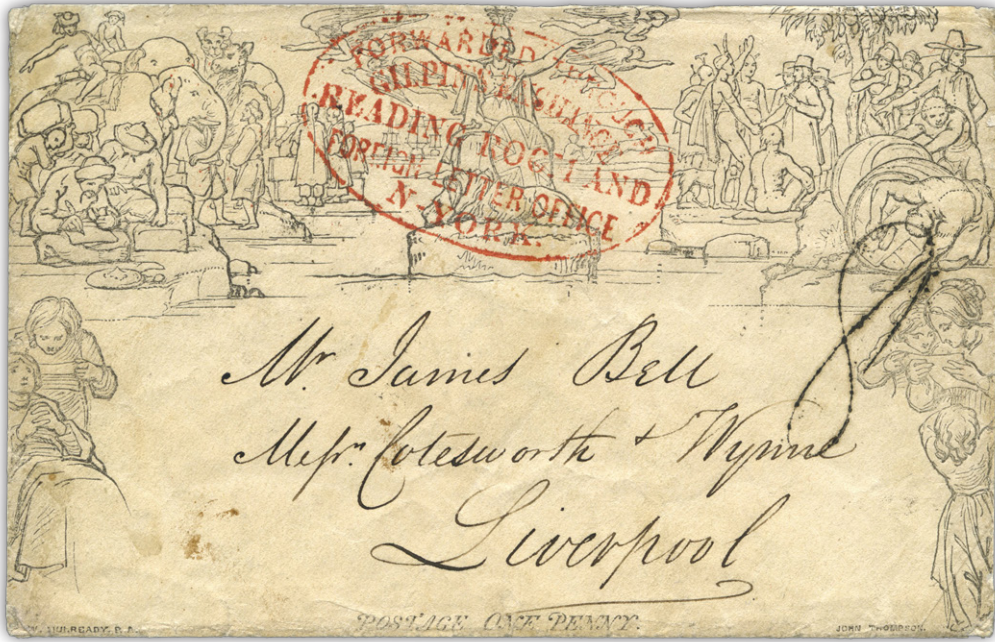 FORWARDED THROUGH
GILPIN'S EXCHANGE
READING ROOM AND
FOREIGN LETTER OFFICE
N-YORK.
8
Mr. James Bell
Messrs. Cotesworth & Wynne
Liverpool
POSTAGE ONE PENNY.
W. MULREADY. R.A.
JOHN THOMPSON.